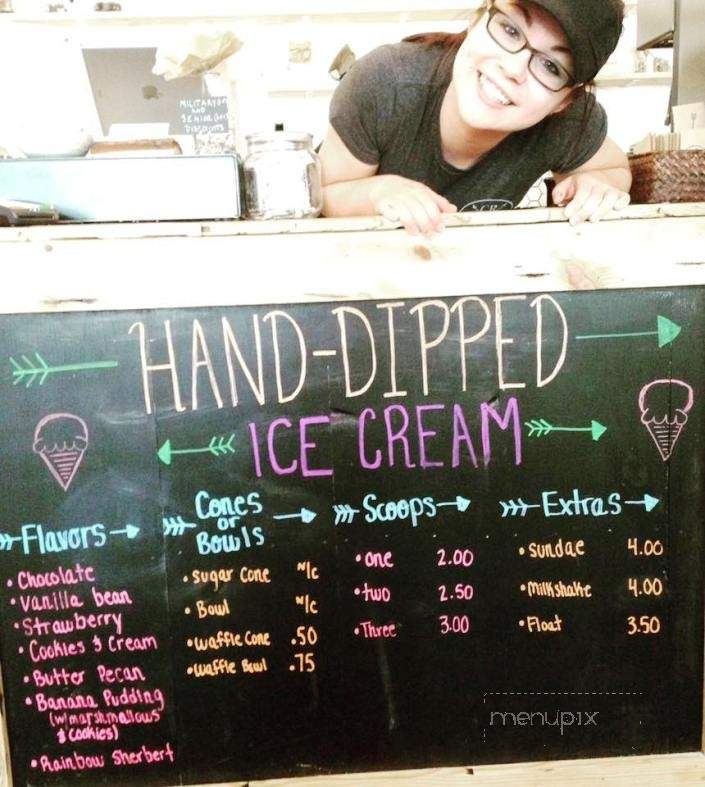 MILITARY
AND
SENIOR
DISCOUNTS
HAND-DIPPED
ICE CREAM
Flavors
• Chocolate
• Vanilla bean
• Strawberry
• Cookies & Cream
• Butter Pecan
• Banana Pudding
(w/ marshmallows
& cookies)
• Rainbow Sherbert
Cones
or
Bowls
• Sugar Cone N/c
• Bowl N/c
• Waffle Cone .50
• Waffle Bowl .75
Scoops
• One 2.00
• Two 2.50
• Three 3.00
Extras
• Sundae 4.00
• Milkshake 4.00
• Float 3.50
menupix